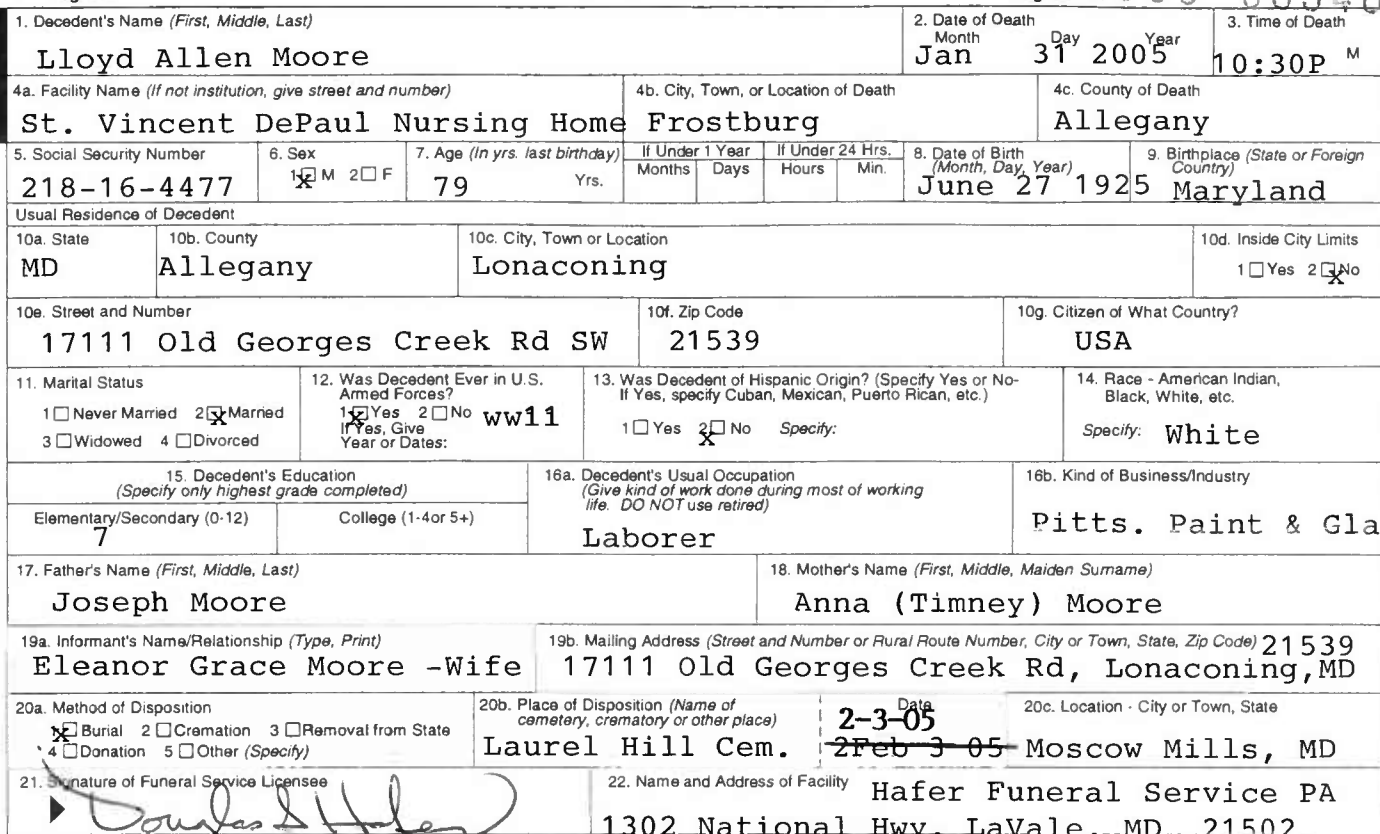 1. Decedent's Name (First, Middle, Last)
Lloyd Allen Moore
2. Date of Death
Month Day Year
Jan 31 2005
3. Time of Death
10:30P M
4a. Facility Name (If not institution, give street and number)
St. Vincent DePaul Nursing Home
4b. City, Town, or Location of Death
Frostburg
4c. County of Death
Allegany
5. Social Security Number
218-16-4477
6. Sex
1☒ M 2☐ F
7. Age (In yrs. last birthday)
79 Yrs.
If Under 1 Year
Months Days
If Under 24 Hrs.
Hours Min.
8. Date of Birth
(Month, Day, Year)
June 27 1925
9. Birthplace (State or Foreign
Country)
Maryland
Usual Residence of Decedent
10a. State
MD
10b. County
Allegany
10c. City, Town or Location
Lonaconing
10d. Inside City Limits
1☐Yes 2☒No
10e. Street and Number
17111 Old Georges Creek Rd SW
10f. Zip Code
21539
10g. Citizen of What Country?
USA
11. Marital Status
1☐Never Married 2☒Married
3☐Widowed 4☐Divorced
12. Was Decedent Ever in U.S.
Armed Forces?
1☒Yes 2☐No ww11
If Yes, Give
Year or Dates:
13. Was Decedent of Hispanic Origin? (Specify Yes or No-
If Yes, specify Cuban, Mexican, Puerto Rican, etc.)
1☐Yes 2☒No Specify:
14. Race - American Indian,
Black, White, etc.
Specify: White
15. Decedent's Education
(Specify only highest grade completed)
Elementary/Secondary (0-12)
7
College (1-4or 5+)
16a. Decedent's Usual Occupation
(Give kind of work done during most of working
life. DO NOT use retired)
Laborer
16b. Kind of Business/Industry
Pitts. Paint & Gla
17. Father's Name (First, Middle, Last)
Joseph Moore
18. Mother's Name (First, Middle, Maiden Surname)
Anna (Timney) Moore
19a. Informant's Name/Relationship (Type, Print)
Eleanor Grace Moore -Wife
19b. Mailing Address (Street and Number or Rural Route Number, City or Town, State, Zip Code) 21539
17111 Old Georges Creek Rd, Lonaconing,MD
20a. Method of Disposition
1☒Burial 2☐Cremation 3☐Removal from State
4☐Donation 5☐Other (Specify)
20b. Place of Disposition (Name of
cemetery, crematory or other place)
Laurel Hill Cem.
Date
2-3-05
2Feb 3 05
20c. Location - City or Town, State
Moscow Mills, MD
21. Signature of Funeral Service Licensee
Douglas S Hafer
22. Name and Address of Facility
Hafer Funeral Service PA
1302 National Hwy. LaVale, MD 21502